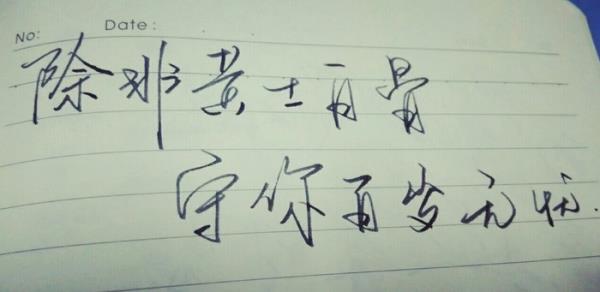 No: Date:
除非黄土百骨
守你百岁无忧.